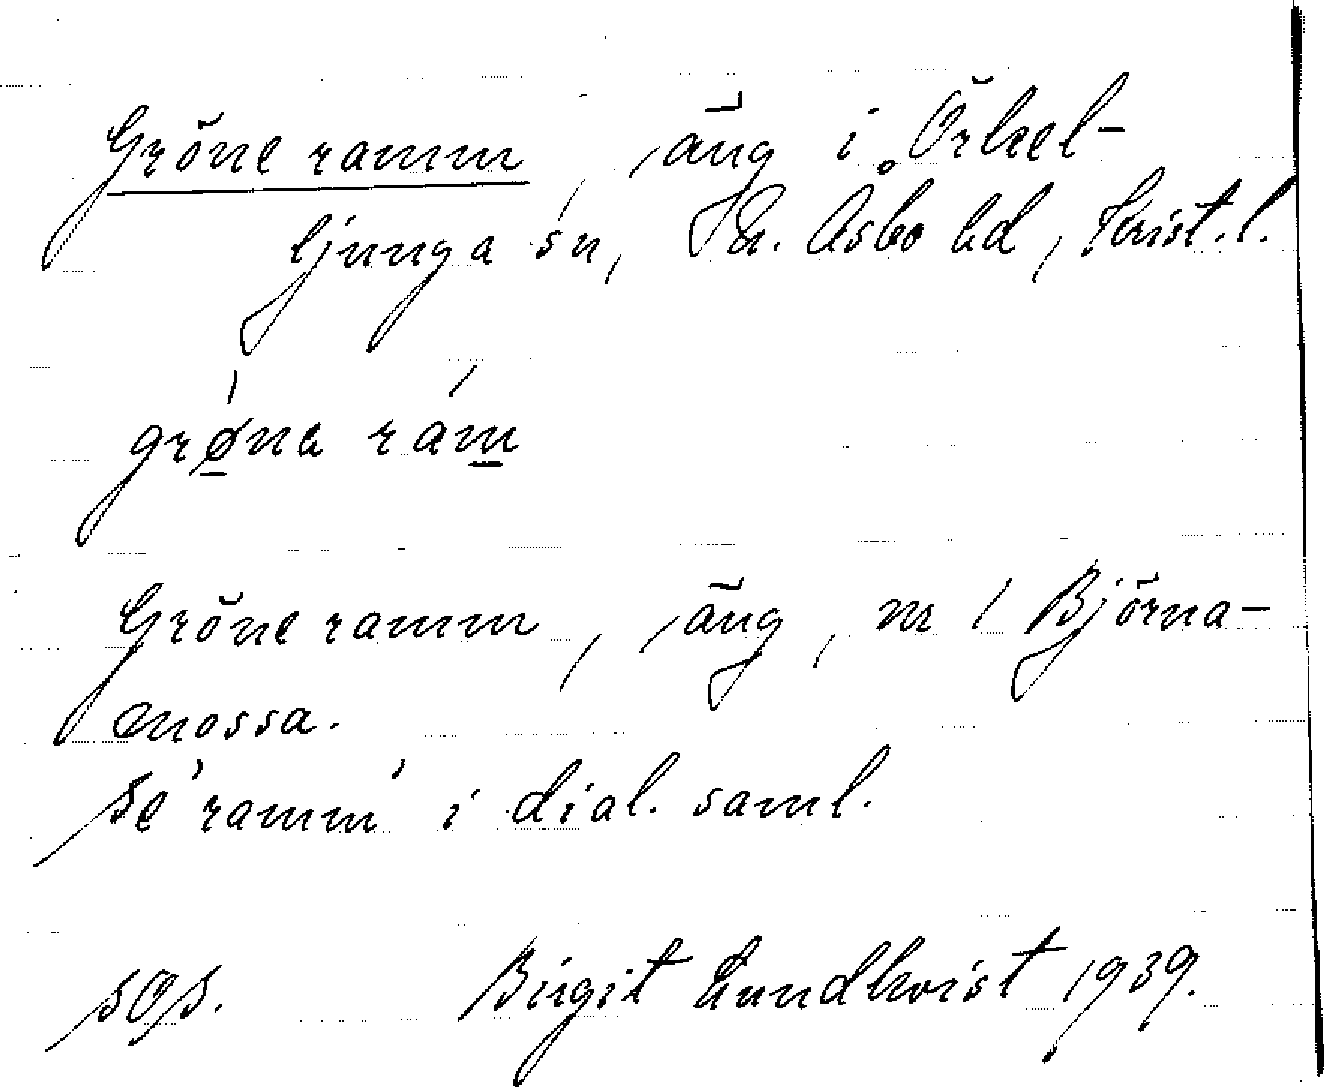 Gröne ramm, äng i Örkel-
ljunga sn, N. Åsbo hd, Krist. l.
grø̱na ram̱
Gröne ramm, äng, m / Björna-
mossa.
Se 'ramm' i dial. saml.
sös. Birgit Lundkvist 1939.